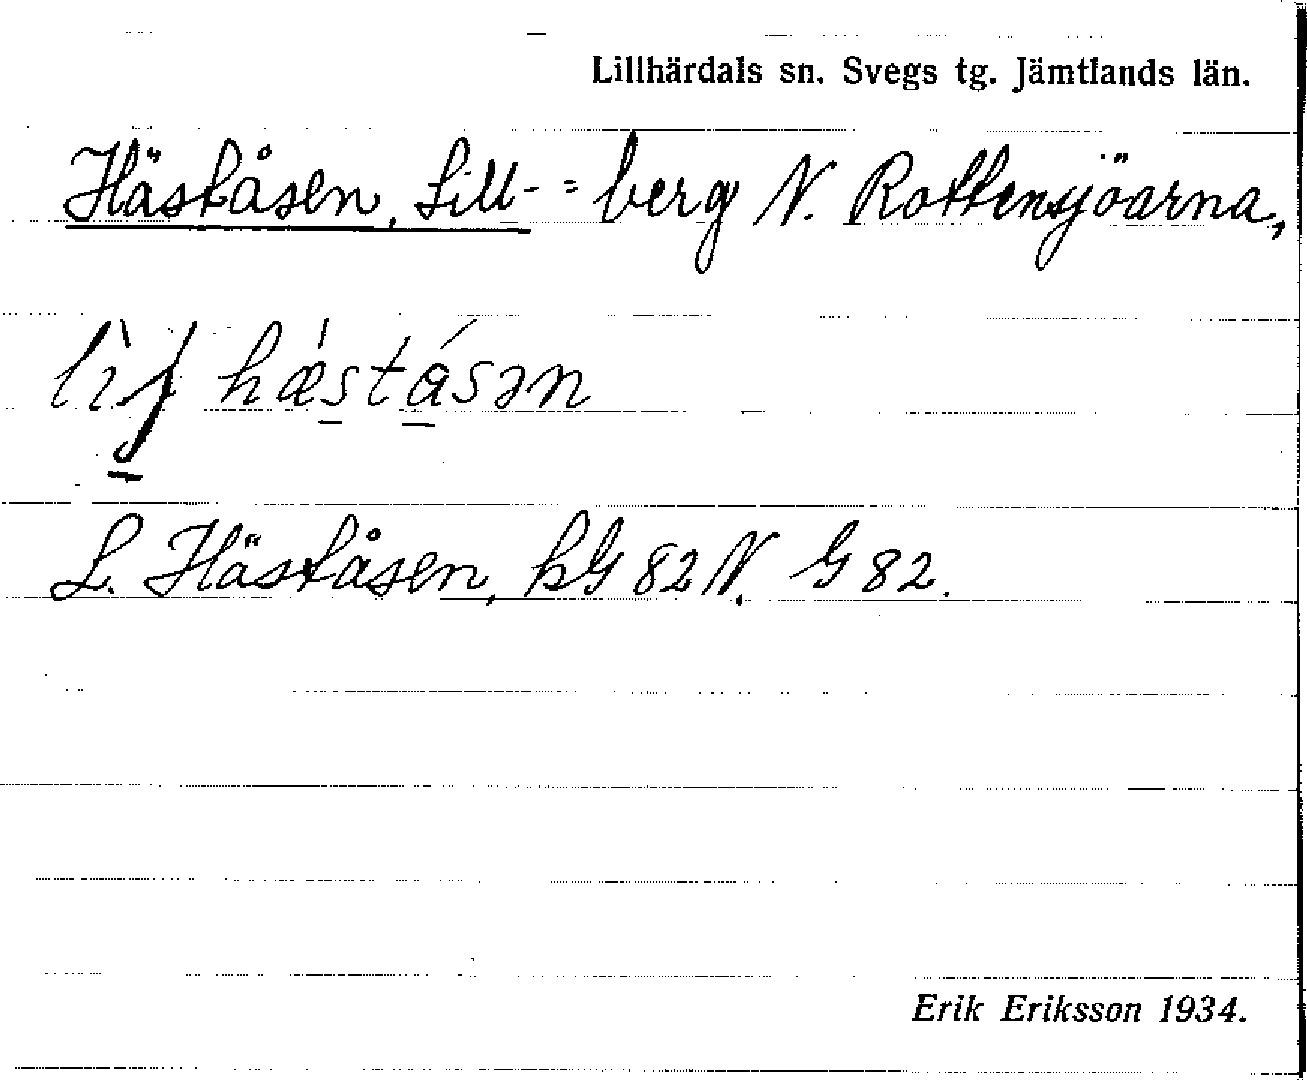 Lillhärdals sn. Svegs tg. Jämtlands län.
Häståsen, Lill- = berg N. Rottensjöarna,
hæ̀stásən
L. Häståsen, kG 82 N. G 82.
Erik Eriksson 1934.